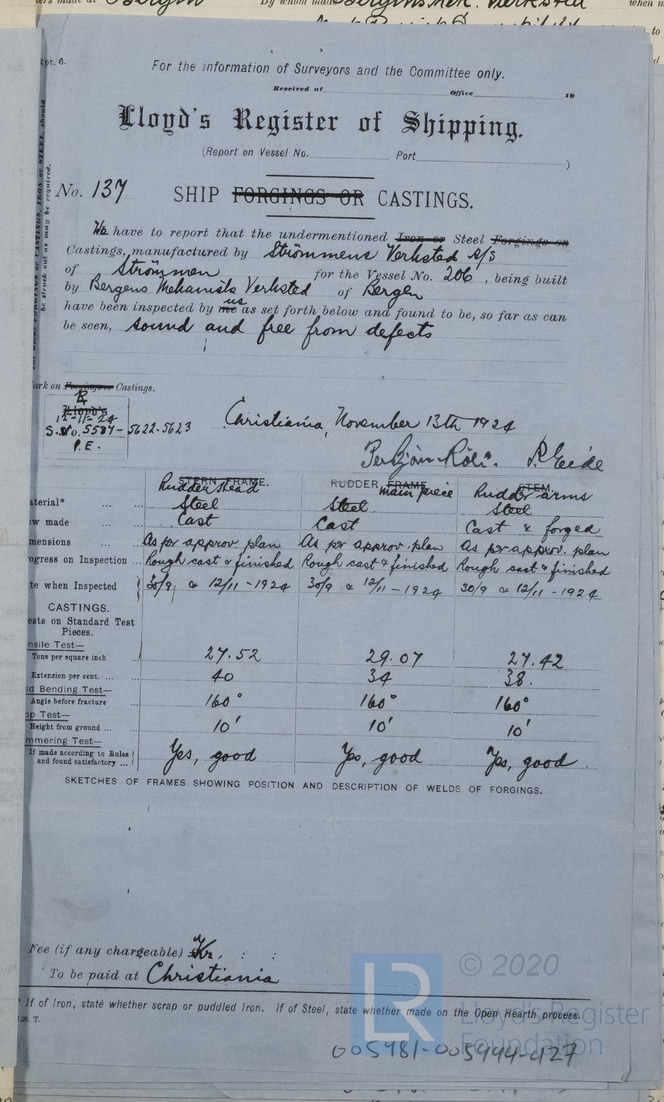 For the information of Surveyors and the Committee only.
Received at Office 19
Lloyd's Register of Shipping.
(Report on Vessel No. Port )
No. 137 SHIP FORGINGS OR CASTINGS.
We have to report that the undermentioned Iron or Steel Forgings or
Castings, manufactured by Strömmens Verksted A/S
of Strömmen for the Vessel No. 206, being built
by Bergens Mekaniske Verksted of Bergen
have been inspected by me us as set forth below and found to be, so far as can
be seen, sound and free from defects
ark on Forgings or Castings.
Lloyd's
12-11-24
S.No. 5587-5622-5623
P.E.
Christiania, November 13th 1924
P. Eide
STERN FRAME. RUDDER FRAME main piece STEM
Rudder head Rudder arms
aterial* Steel Steel Steel
ow made Cast Cast Cast & forged
mensions As per approv. plan As per approv. plan As per approv. plan
ogress on Inspection Rough cast & finished Rough cast & finished Rough cast & finished
te when Inspected 30/9 & 12/11-1924 30/9 & 12/11-1924 30/9 & 12/11-1924
CASTINGS.
ests on Standard Test
Pieces.
nsile Test—
Tons per square inch 27.52 29.07 27.42
Extension per cent. 40 34 38.
ld Bending Test—
Angle before fracture 160° 160° 160°
op Test—
Height from ground 10' 10' 10'
mmering Test—
If made according to Rules
and found satisfactory Yes, good Yes, good Yes, good.
SKETCHES OF FRAMES SHOWING POSITION AND DESCRIPTION OF WELDS OF FORGINGS.
Fee (if any chargeable) Kr. : :
To be paid at Christiania
If of Iron, state whether scrap or puddled Iron. If of Steel, state whether made on the Open Hearth process.
© 2020
Lloyd's Register
Foundation
005981-005994-427